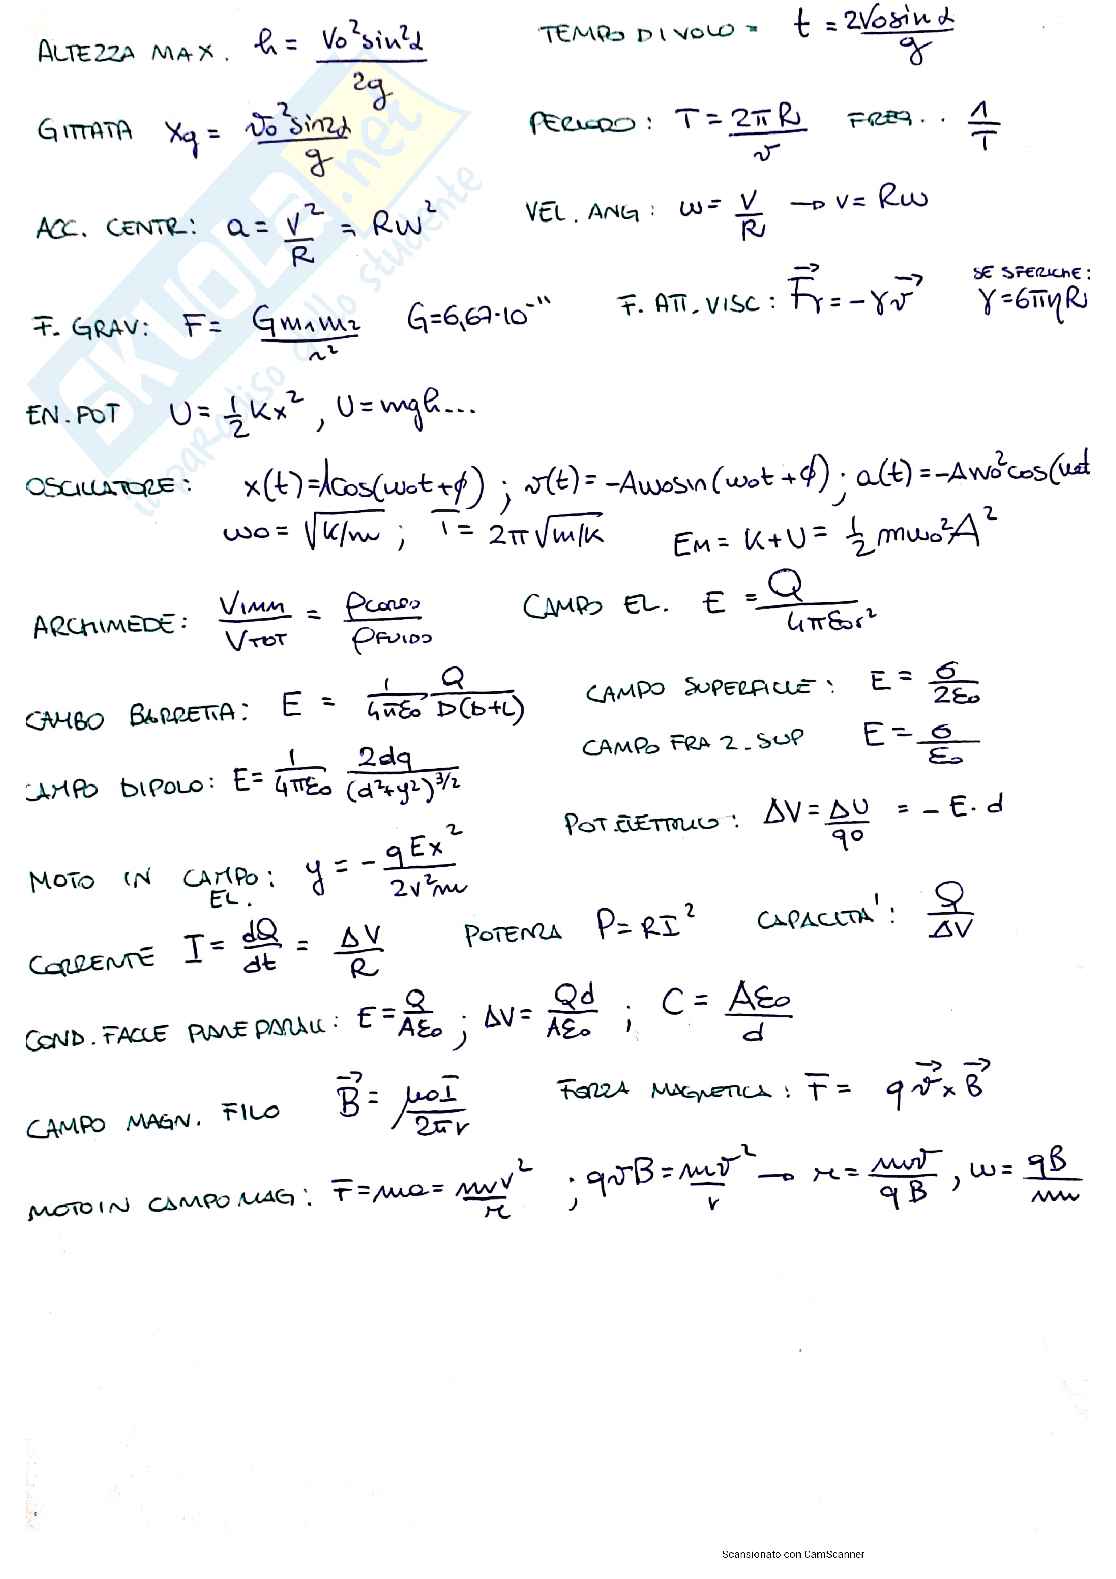 ALTEZZA MAX. h = V0²sin²α / 2g    TEMPO DI VOLO = t = 2V0sinα / g
GITTATA Xg = v0²sin2α / g    PERIODO: T = 2πR / v    FREQ.. 1/T
ACC. CENTR: a = V²/R = Rω²    VEL. ANG: ω = V/R → v = Rω
F. GRAV: F = Gm1m2 / r²    G=6,67·10⁻¹¹    F. ATT. VISC: F⃗r = -γv⃗    SE SFERICHE: γ=6πηR
EN. POT    U = 1/2 Kx², U = mgh...
OSCILLATORE: x(t)=Acos(ω0t+ϕ); v(t) = -Aω0sin(ω0t+ϕ); a(t)=-Aω0²cos(ω0t
ω0 = √k/m; T = 2π√m/k    EM = K+U = 1/2 mω0²A²
ARCHIMEDE: VIMM / VTOT = ρCORPO / ρFLUIDO    CAMPO EL. E = Q / 4πε0r²
CAMPO BARRETTA: E = 1/4πε0 Q / D(D+L)    CAMPO SUPERFICIE: E = σ / 2ε0
CAMPO FRA 2 SUP    E = σ / ε0
CAMPO DIPOLO: E = 1/4πε0 2dq / (d²+y²)^3/2
POT. ELETTRICO: ΔV = ΔU / q0 = - E · d
MOTO IN CAMPO EL.: y = - qEx² / 2v²m
CORRENTE I = dQ/dt = ΔV/R    POTENZA P = RI²    CAPACITA': Q / ΔV
COND. FACCE PIANE PARALL: E = Q / Aε0; ΔV = Qd / Aε0; C = Aε0 / d
CAMPO MAGN. FILO    B⃗ = μ0I / 2πr    FORZA MAGNETICA: F = qv⃗ x B⃗
MOTO IN CAMPO MAG: F = ma = mv²/r ; qvB = mv²/r → r = mv / qB, ω = qB / m
SKUOLA.net
il paradiso dello studente
Scansionato con CamScanner